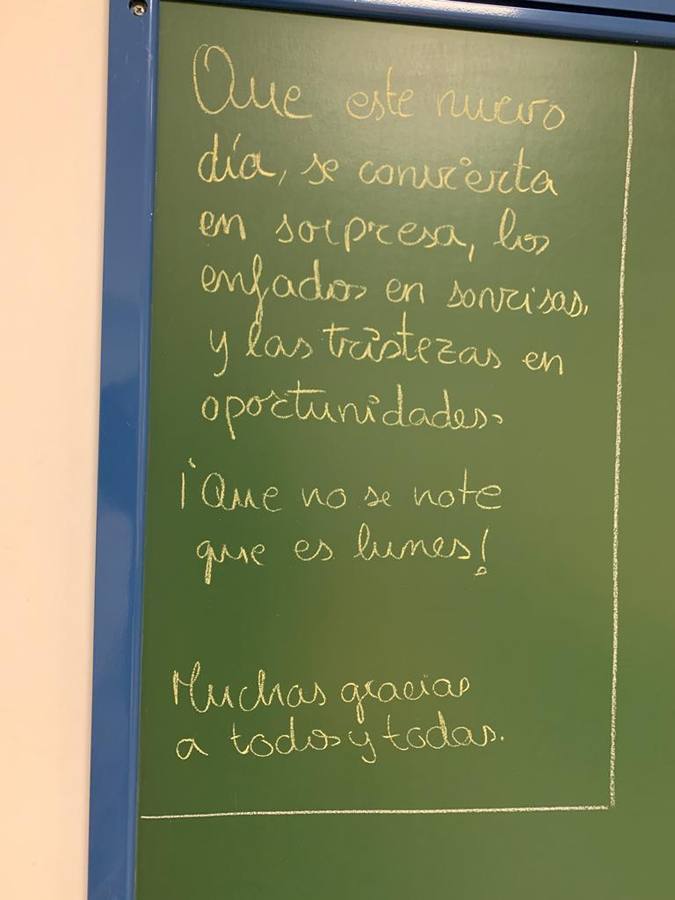 Que este nuevo
día, se convierta
en sorpresa, los
enfados en sonrisas,
y las tristezas en
oportunidades.
¡Que no se note
que es lunes!
Muchas gracias
a todos y todas.